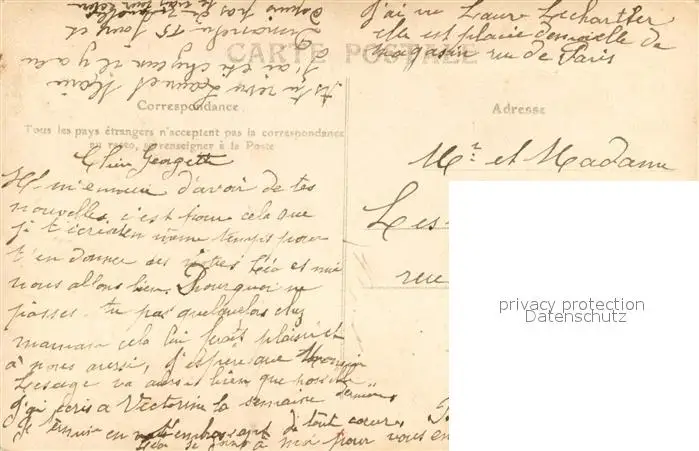 J'ai vu Laure Lechartier
elle est placée demoiselle de
magasin rue de Paris
As tu revu Laure et
J'ai été chez eux il y a eu
Dimanche 15 jours et
depuis pas de
CARTE POSTALE
Correspondance
Adresse
Tous les pays étrangers n'acceptent pas la correspondance
au recto, se renseigner à la Poste
Chère Georgette
Il m'ennuie d'avoir de tes
nouvelles, c'est pour cela que
je t'écris en même temps pour
t'en donner des nôtres Léa et moi
nous allons bien. Pourquoi ne
passes-tu pas quelquefois chez
maman cela lui ferait plaisir et
à nous aussi, j'espère que Monsieur
Lesage va aussi bien que possible.
J'ai écris a Victorine la semaine dernière
Je termine en t'embrassant de tout cœur.
Léa se à moi pour vous en
Mr et Madame
Les
rue
privacy protection
Datenschutz